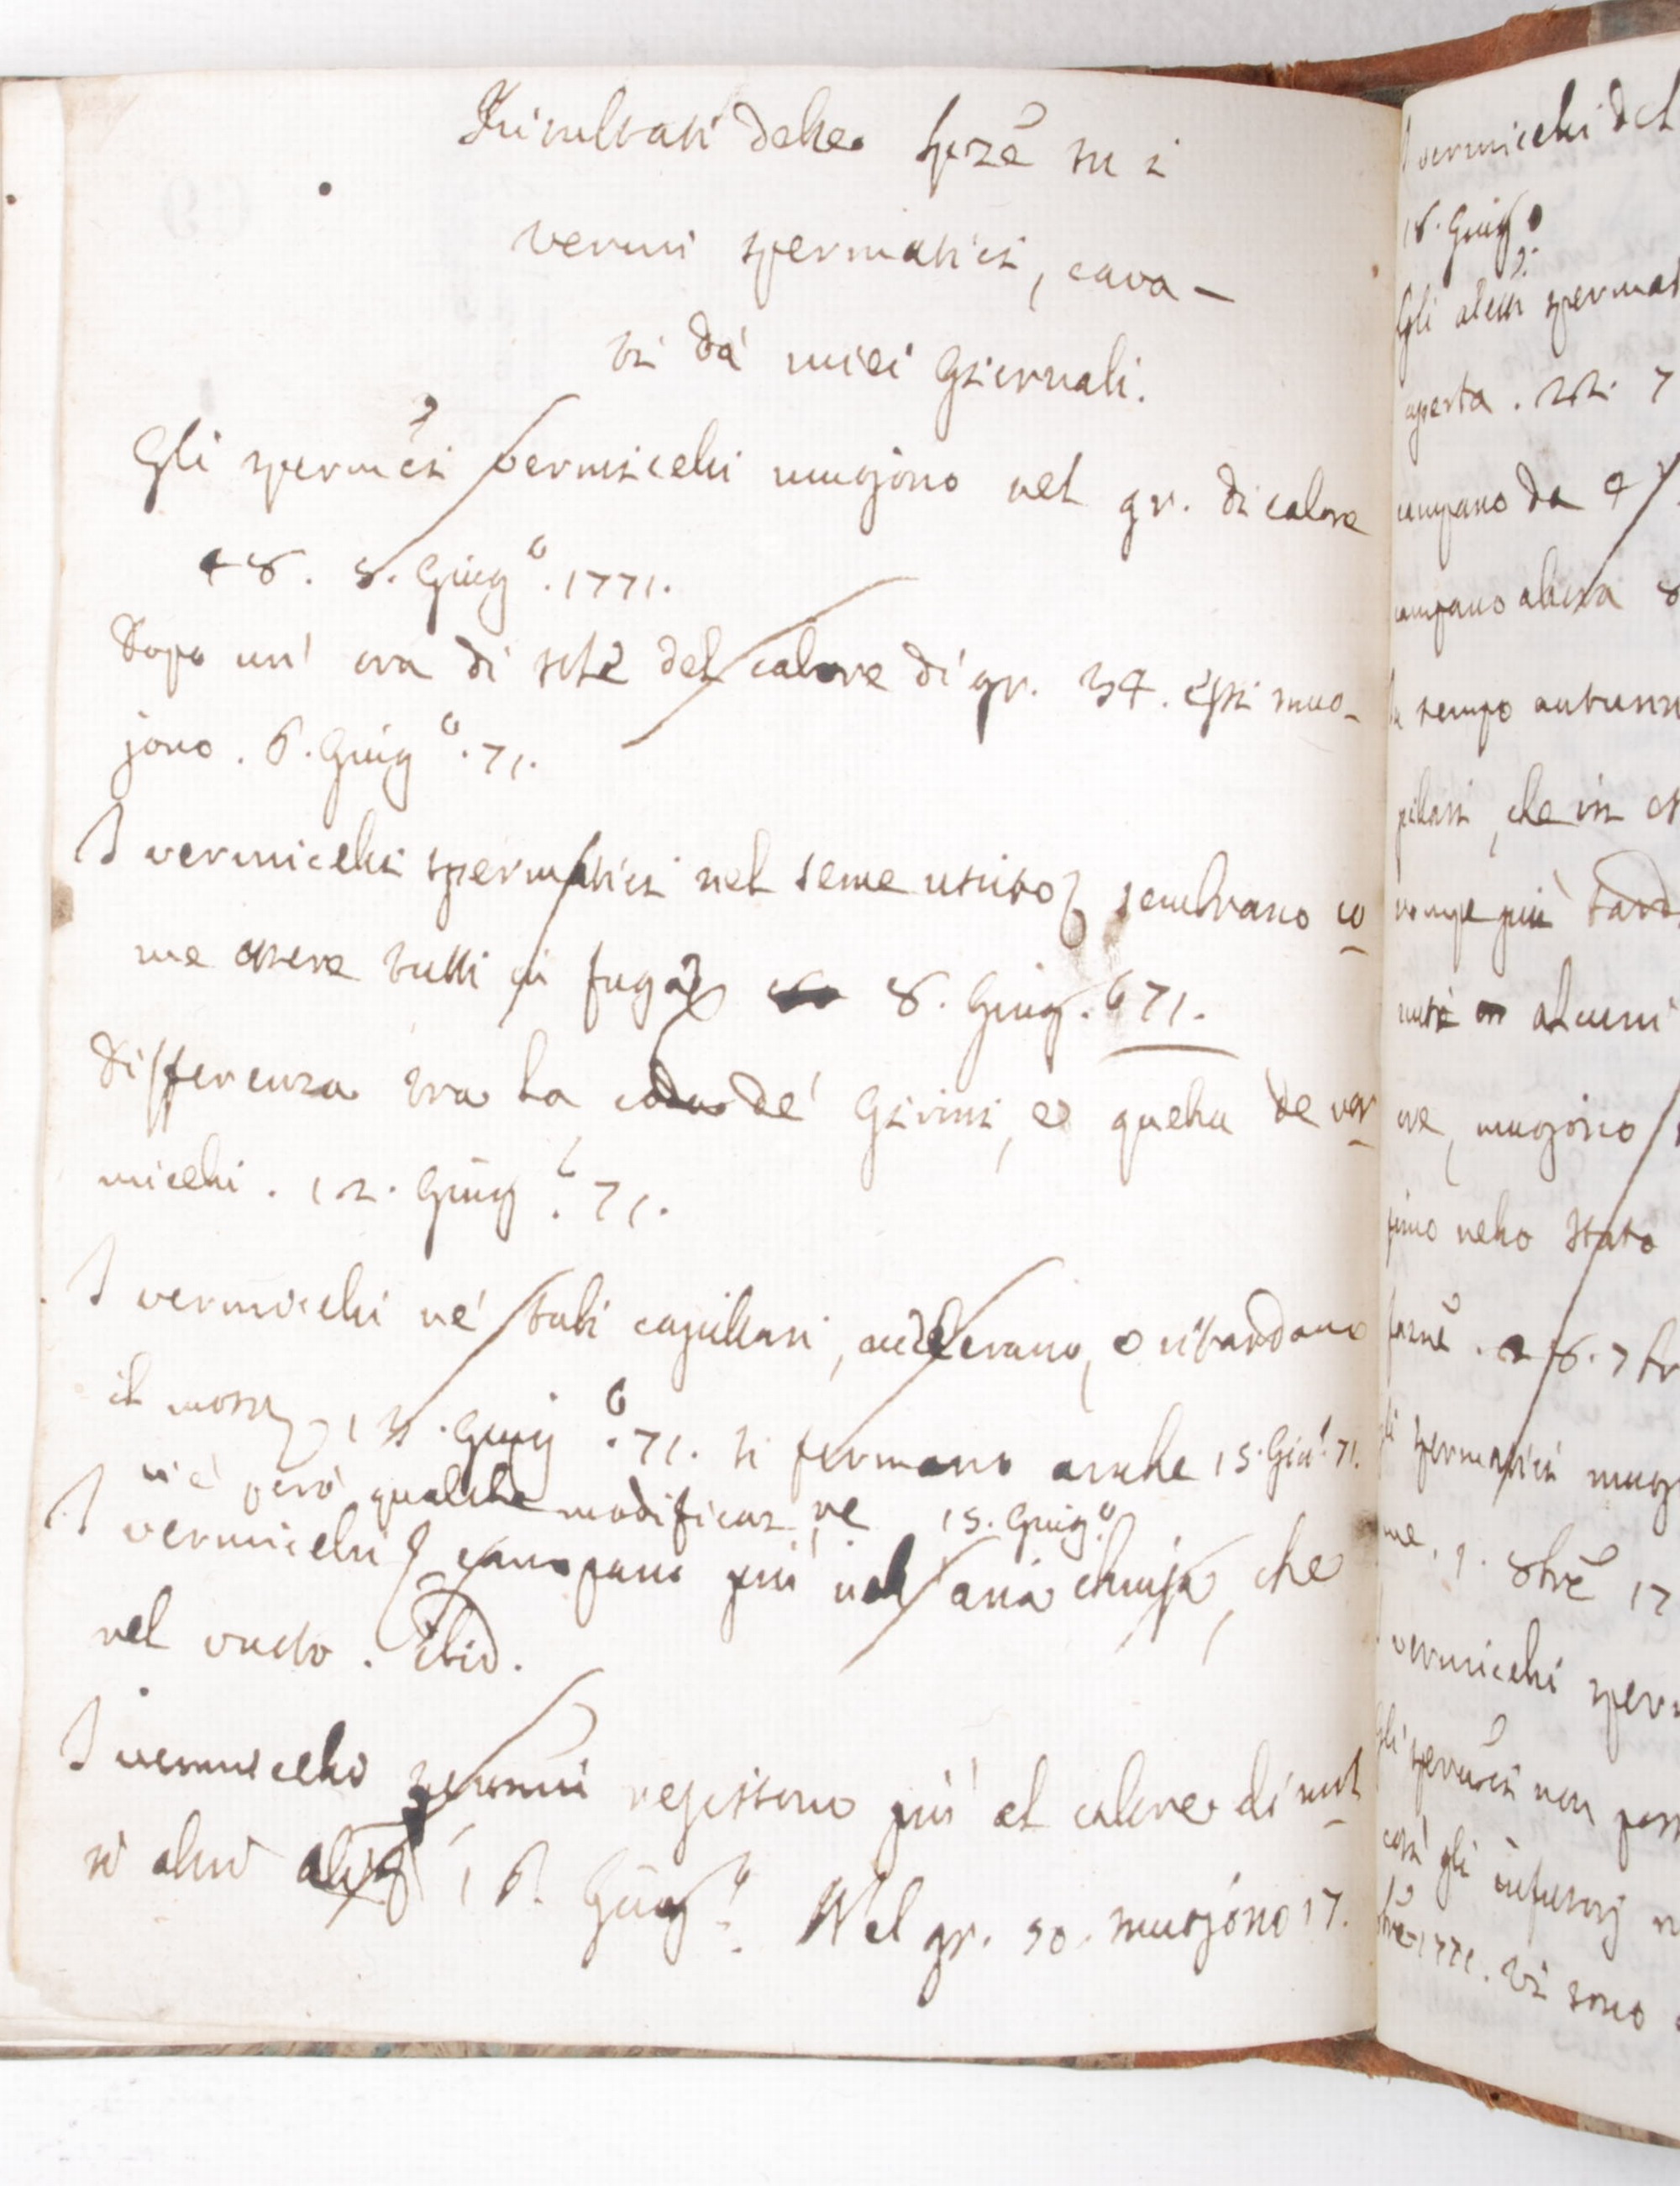 Risultati delle spze su i
vermi spermatici, cava-
ti da' miei Giornali.
Gli spermci vermicelli muojono nel gr. di calore
48. 5. Giugo. 1771.
Dopo un' ora di sole del calore di gr. 34. essi muo-
jono. 6. Giugo. 71.
I vermicelli spermatici nel seme uscito sembrano co
me essere tutti in fuga 8. Giugo. 71.
Differenza tra la coda de' Girini, e quella de ver
micelli. 12. Giugo. 71.
I vermicelli ne' tubi capillari, accelerano, o ritardano
il moto, 13. Giugo. 71. si fermano anche 15. Giuo. 71.
vi è però qualche modificaz ne 15. Giugo.
I vermicelli campano più nell aria chiusa, che
nel vuoto. Ibid.
I vermicelli spermci resistono più al calore di mol
ti altri 16. Giugo. Nel gr. 50. muojono 17.
I vermicelli del
18. Giugo.
Gli altri
aperta. 21 7
campano da 4
campano allora 8
tempo autunn
che in
rompe più tard
alcuni
ore, muojono
simo nello stato
26. 7br
spermatici muoj
me. 9. 8bre 17
vermicelli sperm
gli spermci non poss
così gli infusorj n
bre 1771. Vi sono